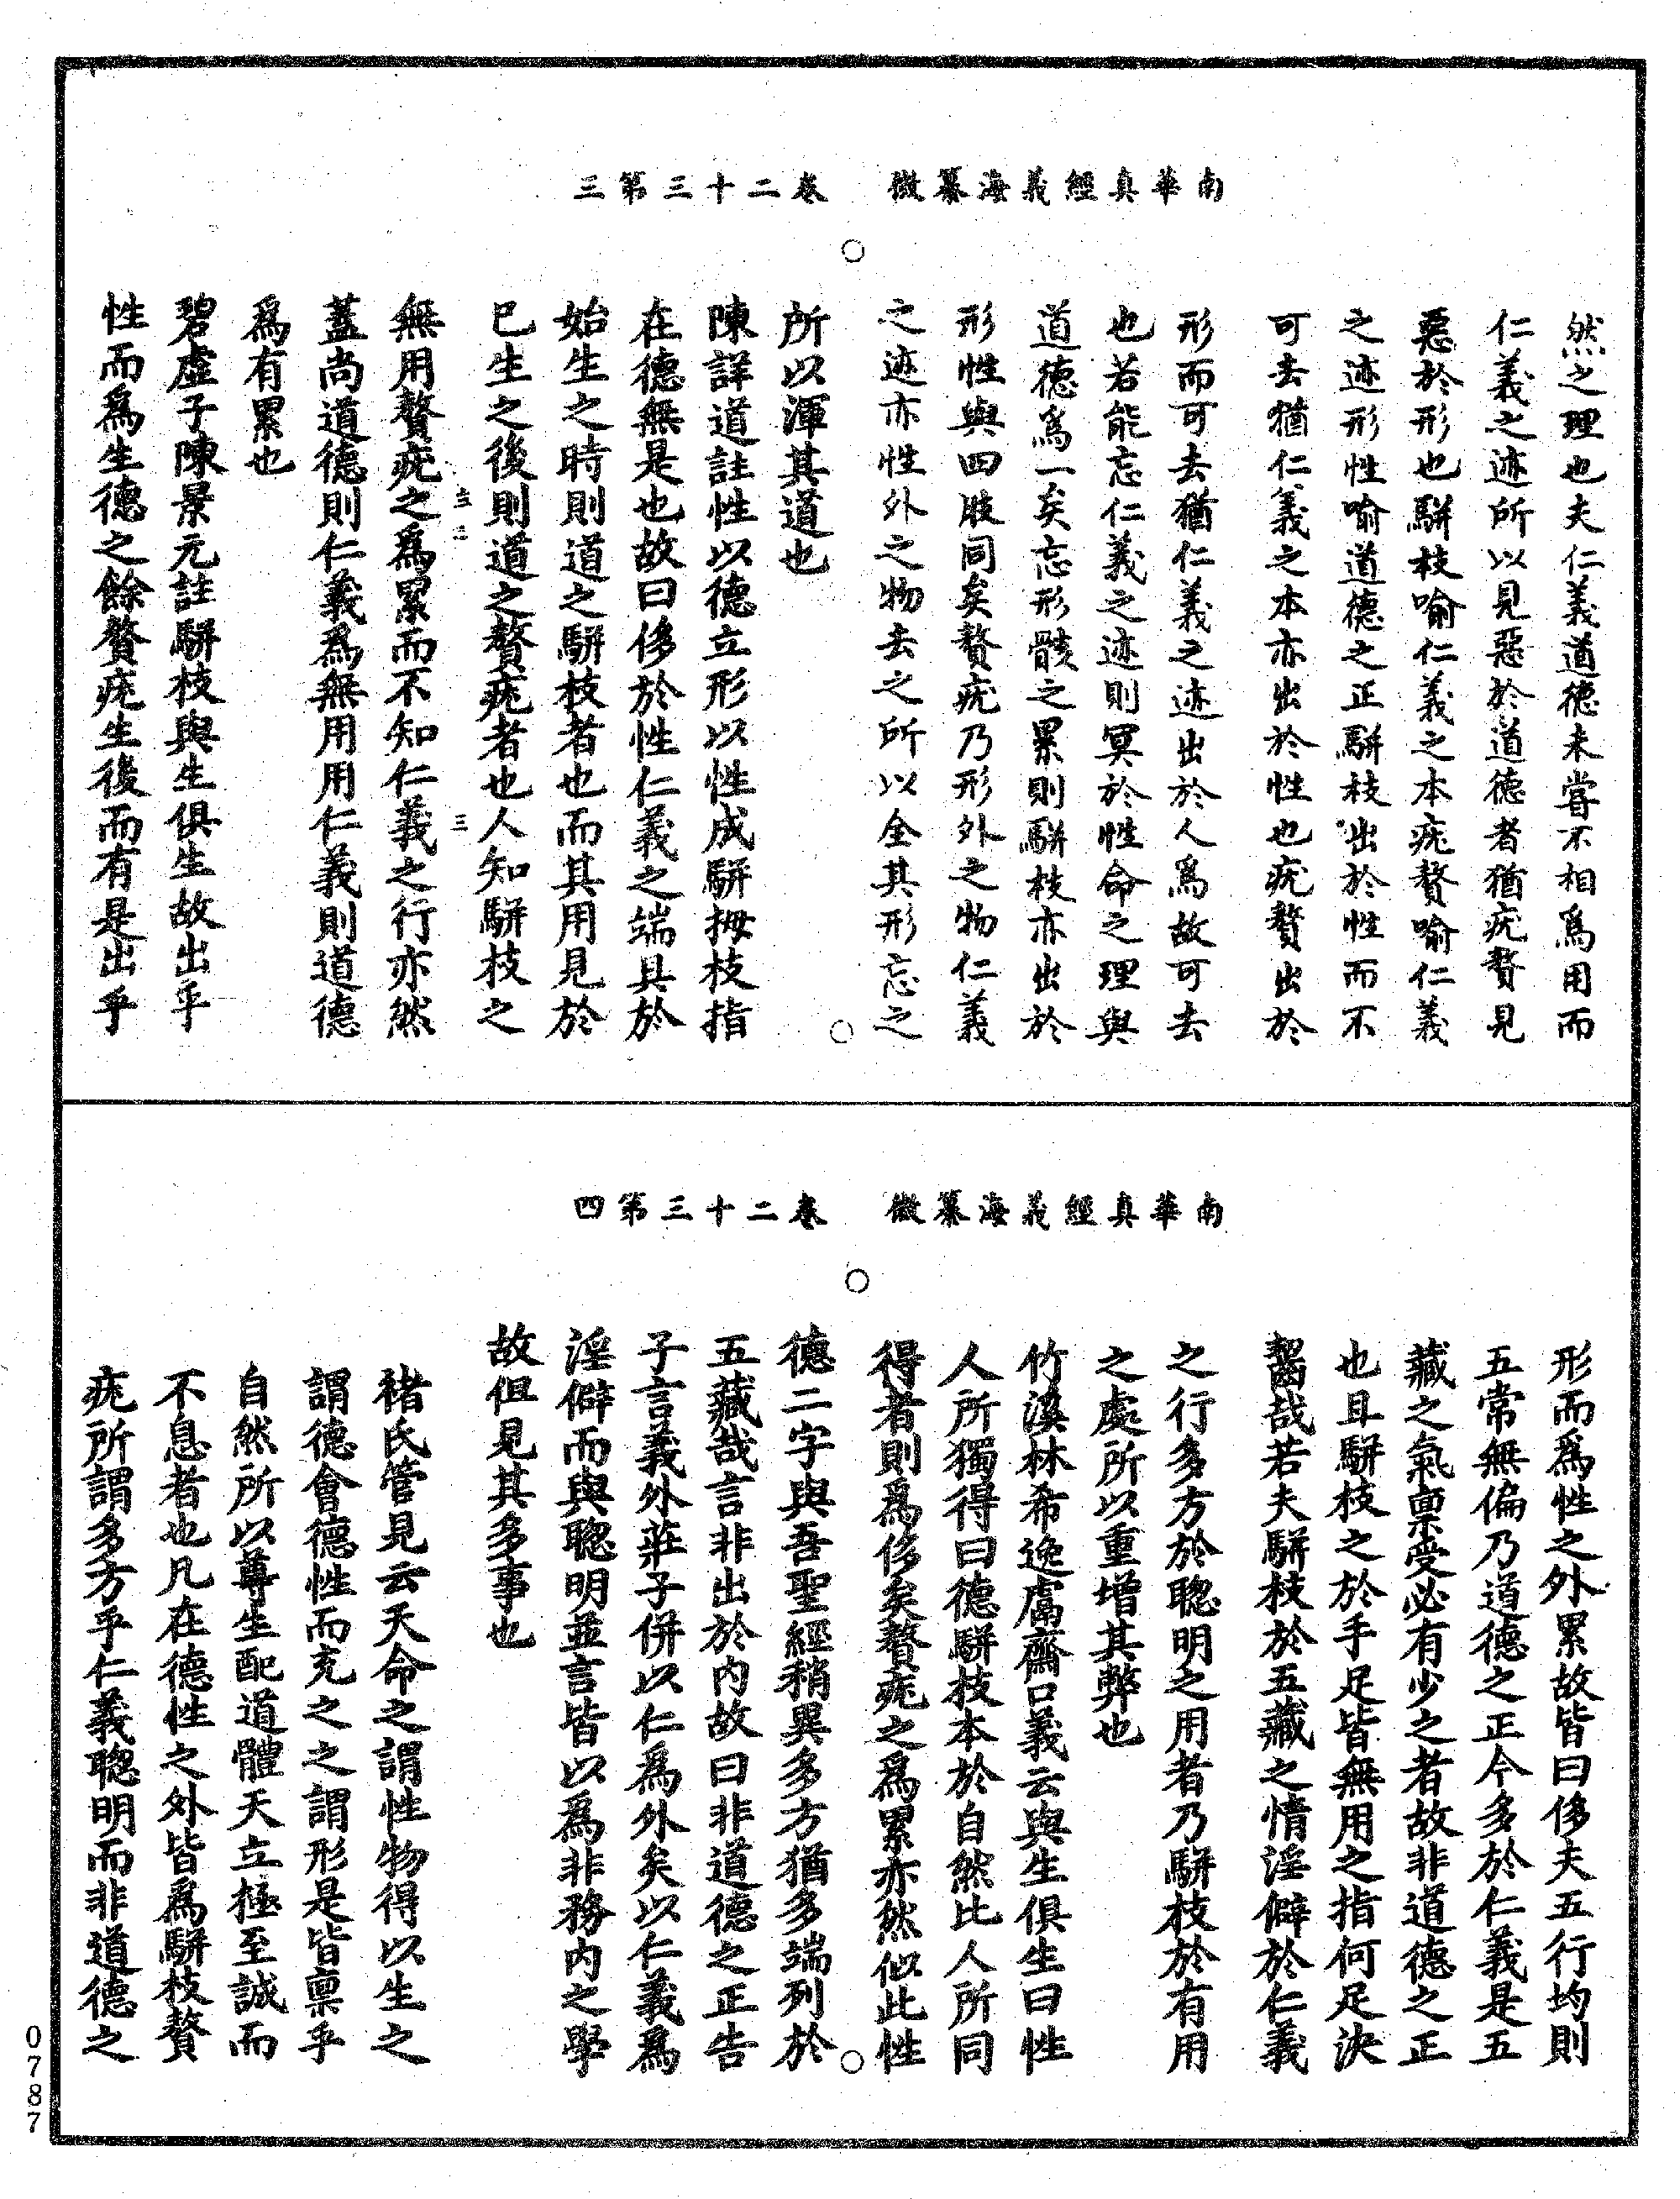 南華真經義海纂微　卷二十三第三
然之理也夫仁義道德未嘗不相爲用而
仁義之迹所以見惡於道德者猶疣贅見
惡於形也駢枝喻仁義之本疣贅喻仁義
之迹形性喻道德之正駢枝出於性而不
可去猶仁義之本亦出於性也疣贅出於
形而可去猶仁義之迹出於人爲故可去
也若能忘仁義之迹則冥於性命之理與
道德爲一矣忘形骸之累則駢枝亦出於
形性與四肢同矣贅疣乃形外之物仁義
之迹亦性外之物去之所以全其形忘之
所以渾其道也
陳詳道註性以德立形以性成駢拇枝指
在德無是也故曰侈於性仁義之端具於
始生之時則道之駢枝者也而其用見於
已生之後則道之贅疣者也人知駢枝之
無用贅疣之爲累而不知仁義之行亦然
蓋尚道德則仁義爲無用用仁義則道德
爲有累也
碧虛子陳景元註駢枝與生俱生故出乎
性而爲生德之餘贅疣生後而有是出乎
南華真經義海纂微　卷二十三第四
形而爲性之外累故皆曰侈夫五行均則
五常無偏乃道德之正今多於仁義是五
藏之氣稟受必有少之者故非道德之正
也且駢枝之於手足皆無用之指何足決
齧哉若夫駢枝於五藏之情淫僻於仁義
之行多方於聰明之用者乃駢枝於有用
之處所以重增其弊也
竹溪林希逸鬳齋口義云與生俱生曰性
人所獨得曰德駢枝本於自然比人所同
得者則爲侈矣贅疣之爲累亦然似此性
德二字與吾聖經稍異多方猶多端列於
五藏哉言非出於內故曰非道德之正告
子言義外莊子併以仁爲外矣以仁義爲
淫僻而與聰明並言皆以爲非務內之學
故但見其多事也
褚氏管見云天命之謂性物得以生之
謂德會德性而充之之謂形是皆稟乎
自然所以尊生配道體天立極至誠而
不息者也凡在德性之外皆爲駢枝贅
疣所謂多方乎仁義聰明而非道德之
0787